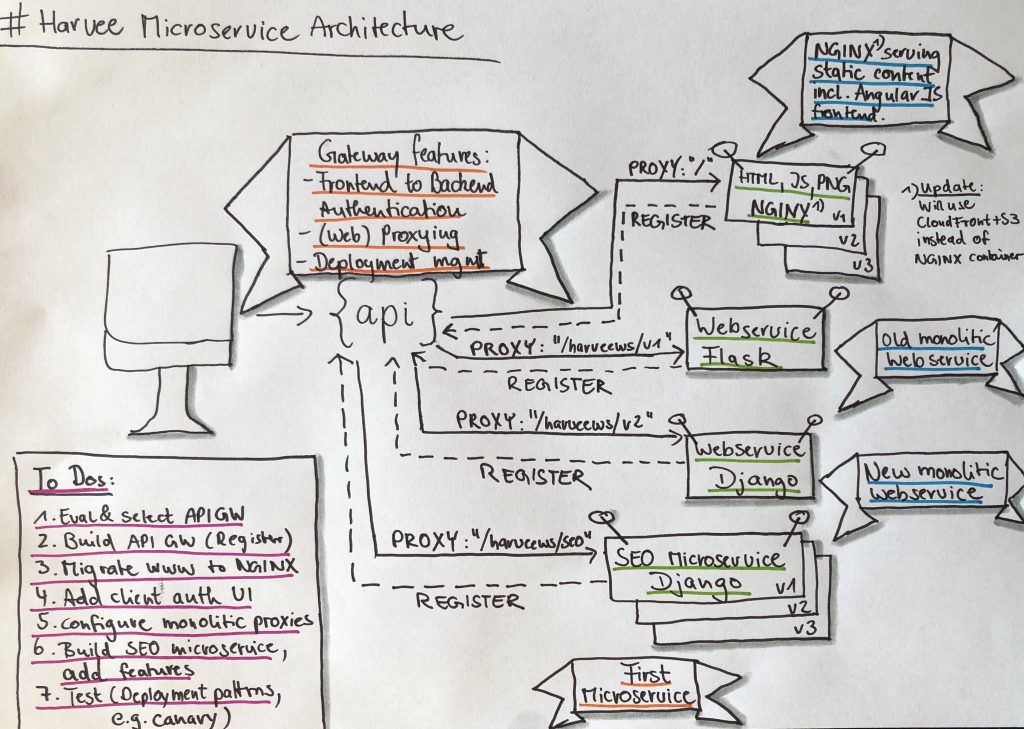 # Harvee Microservice Architecture
NGINX¹⁾ serving
static content
incl. AngularJS
frontend.
Gateway features:
- Frontend to Backend
Authentication
- (Web) Proxying
- Deployment mgmt
{api}
PROXY: "/"
REGISTER
HTML, JS, PNG
NGINX¹⁾ v1
v2
v3
1) Update:
Will use
CloudFront+S3
instead of
NGINX container
PROXY: "/harveews/v1"
REGISTER
Webservice
Flask
Old monolitic
Webservice
PROXY: "/harveews/v2"
REGISTER
Webservice
Django
New monolitic
Webservice
PROXY: "/harveews/seo"
REGISTER
SEO Microservice
Django v1
v2
v3
First
Microservice
To Dos:
1. Eval & select API GW
2. Build API GW (Register)
3. Migrate www to NGINX
4. Add client auth UI
5. configure monolitic proxies
6. Build SEO microservice,
add features
7. Test (Deployment patterns,
e.g. canary)